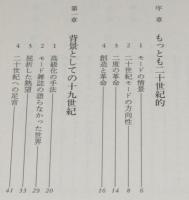 序章 もっとも二十世紀的
1 モードの情景 6
2 二十世紀モードの方向性 8
3 二度の革命 14
4 創造と革命 16
第一章 背景としての十九世紀
1 高級化の手法 20
2 モード雑誌の語らなかった世界 29
3 屈折した熱望 33
4 二十世紀への足音 41